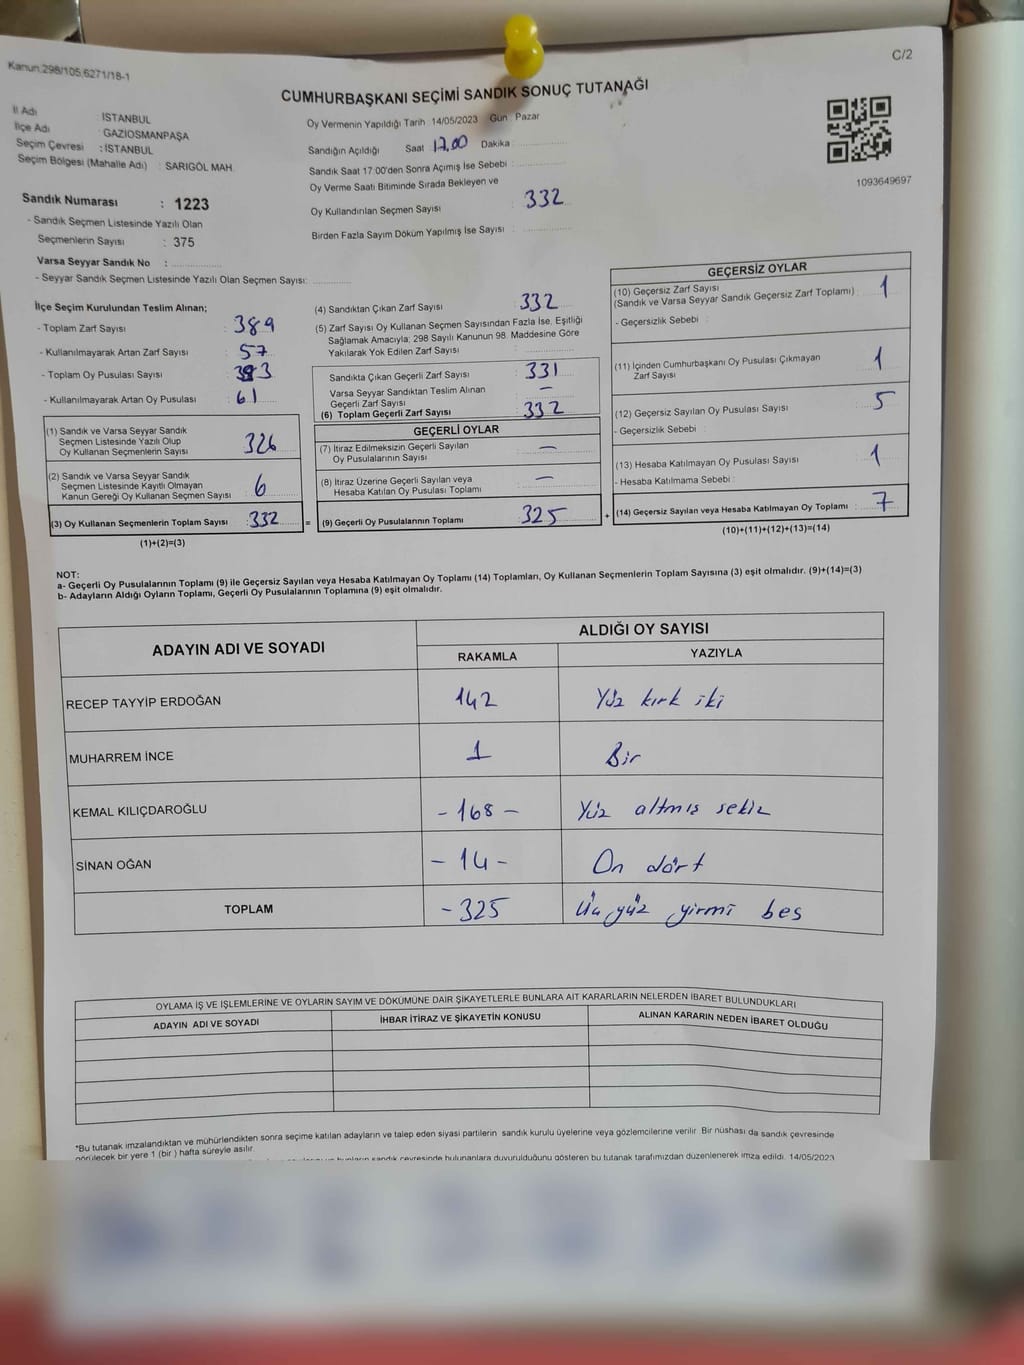 Kanun:298/105,6271/18-1
C/2
CUMHURBAŞKANI SEÇİMİ SANDIK SONUÇ TUTANAĞI
İl Adı : İSTANBUL
İlçe Adı : GAZİOSMANPAŞA
Seçim Çevresi : İSTANBUL
Seçim Bölgesi (Mahalle Adı) : SARIGÖL MAH.
Sandık Numarası : 1223
- Sandık Seçmen Listesinde Yazılı Olan
Seçmenlerin Sayısı : 375
Varsa Seyyar Sandık No :
- Seyyar Sandık Seçmen Listesinde Yazılı Olan Seçmen Sayısı:
Oy Vermenin Yapıldığı Tarih 14/05/2023 Gün Pazar
Sandığın Açıldığı Saat 17.00 Dakika :
Sandık Saat 17:00'den Sonra Açımış İse Sebebi :
Oy Verme Saati Bitiminde Sırada Bekleyen ve
Oy Kullandırılan Seçmen Sayısı : 332
Birden Fazla Sayım Döküm Yapılmış İse Sayısı :
1093649697
İlçe Seçim Kurulundan Teslim Alınan;
- Toplam Zarf Sayısı : 389
- Kullanılmayarak Artan Zarf Sayısı : 57
- Toplam Oy Pusulası Sayısı : 393
- Kullanılmayarak Artan Oy Pusulası : 61
(1) Sandık ve Varsa Seyyar Sandık
Seçmen Listesinde Yazılı Olup
Oy Kullanan Seçmenlerin Sayısı 326
(2) Sandık ve Varsa Seyyar Sandık
Seçmen Listesinde Kayıtlı Olmayan
Kanun Gereği Oy Kullanan Seçmen Sayısı 6
(3) Oy Kullanan Seçmenlerin Toplam Sayısı : 332
(1)+(2)=(3)
=
(4) Sandıktan Çıkan Zarf Sayısı : 332
(5) Zarf Sayısı Oy Kullanan Seçmen Sayısından Fazla İse, Eşitliği
Sağlamak Amacıyla; 298 Sayılı Kanunun 98. Maddesine Göre
Yakılarak Yok Edilen Zarf Sayısı :
Sandıkta Çıkan Geçerli Zarf Sayısı : 331
Varsa Seyyar Sandıktan Teslim Alınan
Geçerli Zarf Sayısı : -
(6) Toplam Geçerli Zarf Sayısı : 332
GEÇERLİ OYLAR
(7) İtiraz Edilmeksizin Geçerli Sayılan
Oy Pusulalarının Sayısı : -
(8) İtiraz Üzerine Geçerli Sayılan veya
Hesaba Katılan Oy Pusulası Toplamı : -
(9) Geçerli Oy Pusulalarının Toplamı : 325
+
GEÇERSİZ OYLAR
(10) Geçersiz Zarf Sayısı
(Sandık ve Varsa Seyyar Sandık Geçersiz Zarf Toplamı) : 1
- Geçersizlik Sebebi :
(11) İçinden Cumhurbaşkanı Oy Pusulası Çıkmayan
Zarf Sayısı : 1
(12) Geçersiz Sayılan Oy Pusulası Sayısı : 5
- Geçersizlik Sebebi :
(13) Hesaba Katılmayan Oy Pusulası Sayısı : 1
- Hesaba Katılmama Sebebi :
(14) Geçersiz Sayılan veya Hesaba Katılmayan Oy Toplamı : 7
(10)+(11)+(12)+(13)=(14)
NOT:
a- Geçerli Oy Pusulalarının Toplamı (9) ile Geçersiz Sayılan veya Hesaba Katılmayan Oy Toplamı (14) Toplamları, Oy Kullanan Seçmenlerin Toplam Sayısına (3) eşit olmalıdır. (9)+(14)=(3)
b- Adayların Aldığı Oyların Toplamı, Geçerli Oy Pusulalarının Toplamına (9) eşit olmalıdır.
ADAYIN ADI VE SOYADI
ALDIĞI OY SAYISI
RAKAMLA YAZIYLA
RECEP TAYYİP ERDOĞAN 142 Yüz kırk iki
MUHARREM İNCE 1 Bir
KEMAL KILIÇDAROĞLU - 168 - Yüz altmış sekiz
SİNAN OĞAN - 14 - On dört
TOPLAM - 325 Üç yüz yirmi beş
OYLAMA İŞ VE İŞLEMLERİNE VE OYLARIN SAYIM VE DÖKÜMÜNE DAİR ŞİKAYETLERLE BUNLARA AİT KARARLARIN NELERDEN İBARET BULUNDUKLARI
ADAYIN ADI VE SOYADI İHBAR İTİRAZ VE ŞİKAYETİN KONUSU ALINAN KARARIN NEDEN İBARET OLDUĞU
*Bu tutanak imzalandıktan ve mühürlendikten sonra seçime katılan adayların ve talep eden siyasi partilerin sandık kurulu üyelerine veya gözlemcilerine verilir. Bir nüshası da sandık çevresinde
görülecek bir yere 1 (bir) hafta süreyle asılır.
sandık çevresinde bulunanlara duyurulduğunu gösteren bu tutanak tarafımızdan düzenlenerek imza edildi. 14/05/2023